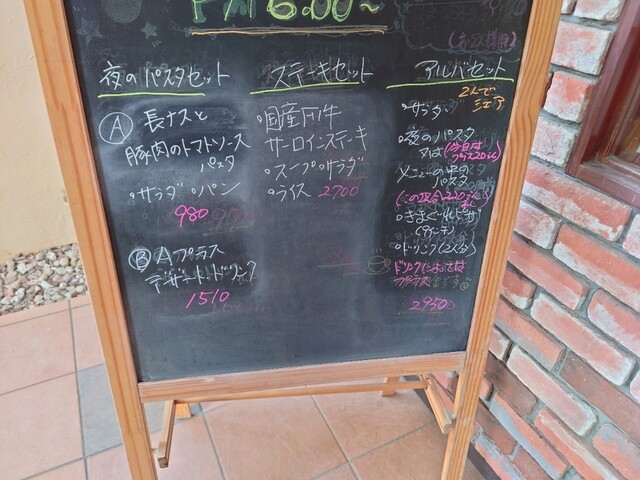 PM 6:00〜
(お2人様用)
夜のパスタセット
Ⓐ 長ナスと
豚肉のトマトソース
パスタ
・サラダ ・パン
980
Ⓑ Aプラス
デザート・ドリンク
1510
ステーキセット
・国産F1牛
サーロインステーキ
・スープ・サラダ
・ライス 2700
アルバセット
2人で
シェア
・サラダ
・夜のパスタ
又は(今日は
メニューの中の
パスタ
・きまぐれピザ
・ドリンク(2人分)
ドリンクによっては
プラス
2950